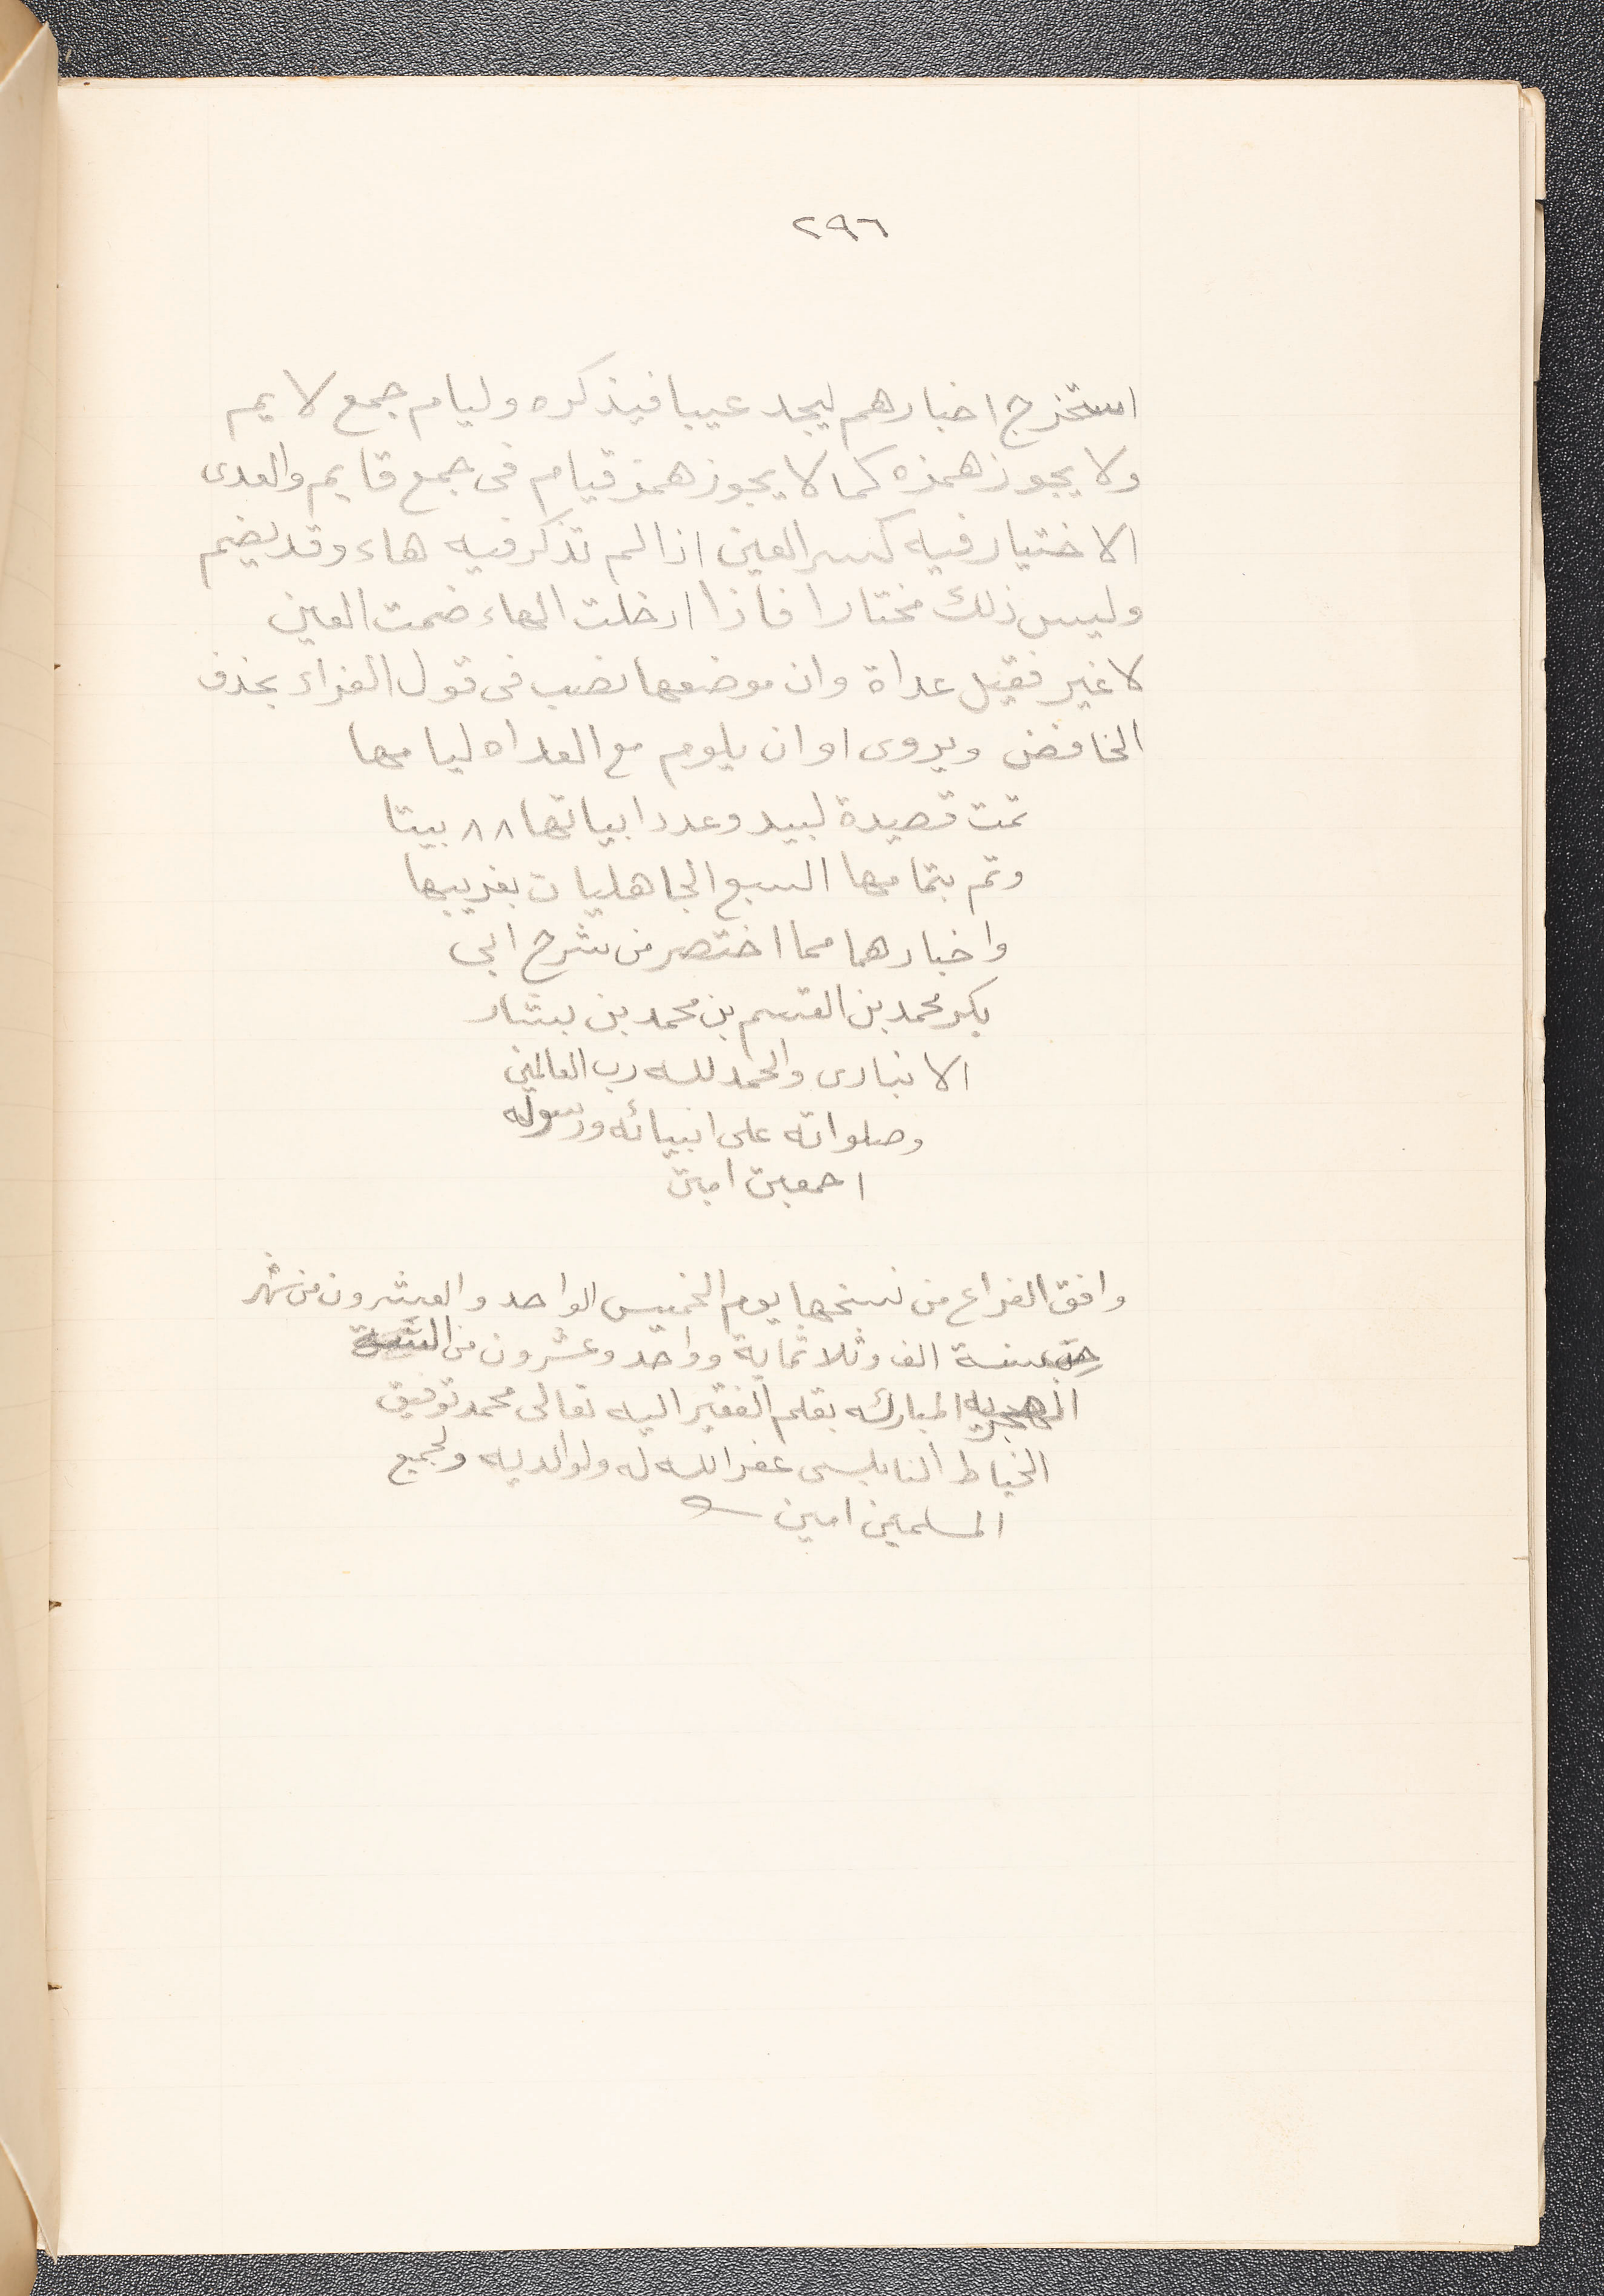 ٢٩٦
استخرج اخبارهم ليجد عيبا فيذكره وليام جمع لايم
ولا يجوز همزه كما لا يجوز همز قيام فى جمع قايم والعدى
الاختيار فيه كسر العين اذا لم تذكر فيه هاء وقد يضم
وليس ذلك مختارا فاذا ادخلت الهاء ضمت العين
لا غير فقيل عداة وان موضعها نصب فى قول الفراء بحذف
الخافض ويروى او ان يلوم مع العداه ليامها
تمت قصيدة لبيد وعدد ابياتها ٨٨ بيتا
وتم بتمامها السبع الجاهليات بغريبها
واخبارهما مما اختصر من شرح ابى
بكر محمد بن القسم بن محمد بن بشار
الانبارى والحمد لله رب العالمين
وصلواته على انبيائه ورسوله
اجمعين امين
وافق الفراغ من نسخها يوم الخميس الواحد والعشرون من شهر
سنة الف وثلاثماية وواحد وعشرون من
الهجريه المباركه بقلم الفقير اليه تعالى محمد توفيق
الخياط النابلسى غفر الله له ولوالديه ولجميع
المسلمين امين